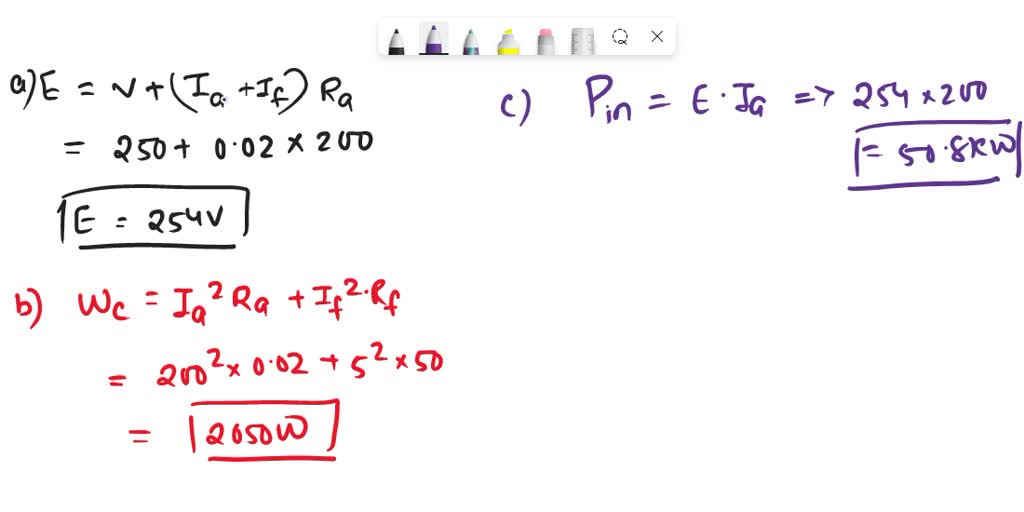 a) E = V + (Ia + If) Ra
= 250 + 0.02 × 200
E = 254V
b) Wc = Ia² Ra + If² · Rf
= 200² × 0.02 + 5² × 50
= 2050W
c) Pin = E · Ia => 254 × 200
= 50.8kW